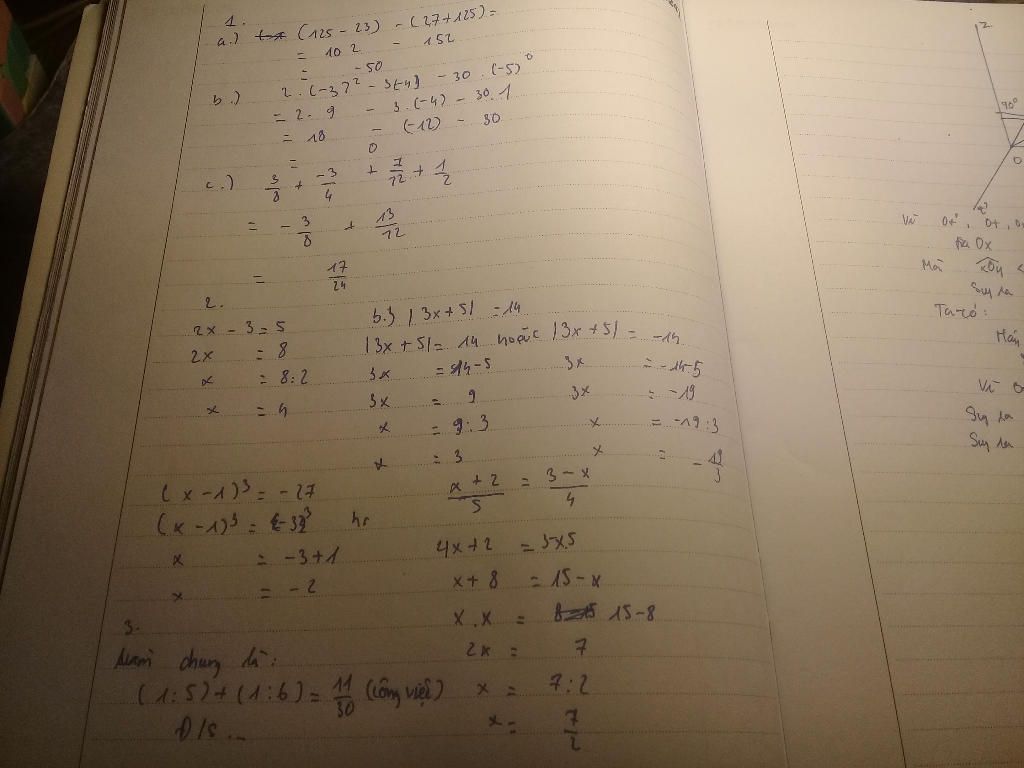 1.
a.) (125 - 23) - (27+125) =
= 102 - 152
= -50
b.) 2.(-3)² - 3(-4) - 30.(-5)⁰
= 2.9 - 3.(-4) - 30.1
= 18 - (-12) - 30
= 0
c.) 3/8 + -3/4 + 7/12 + 1/2
= -3/8 + 13/12
= 17/24
2.
2x - 3 = 5
2x = 8
x = 8:2
x = 4
b.) |3x+5| = 14
|3x+5| = 14 hoặc |3x+5| = -14
3x = 14-5 3x = -14-5
3x = 9 3x = -19
x = 9:3 x = -19:3
x = 3 x = -19/3
(x-1)³ = -27
(x-1)³ = (-3)³
x = -3+1
x = -2
x+2/5 = 3-x/4
4x+2 = 3-x.5
x+8 = 15-x
x.x = 15-8
2x = 7
x = 7:2
x = 7/2
3.
chung là:
(1:5)+(1:6) = 11/30 (công việc)
Đ/s...
z
70°
O
z'
Vì Ox', Ot,
Ox
Mà xOy <
Suy ra
Ta có:
Vì O
Suy ra
Suy ra